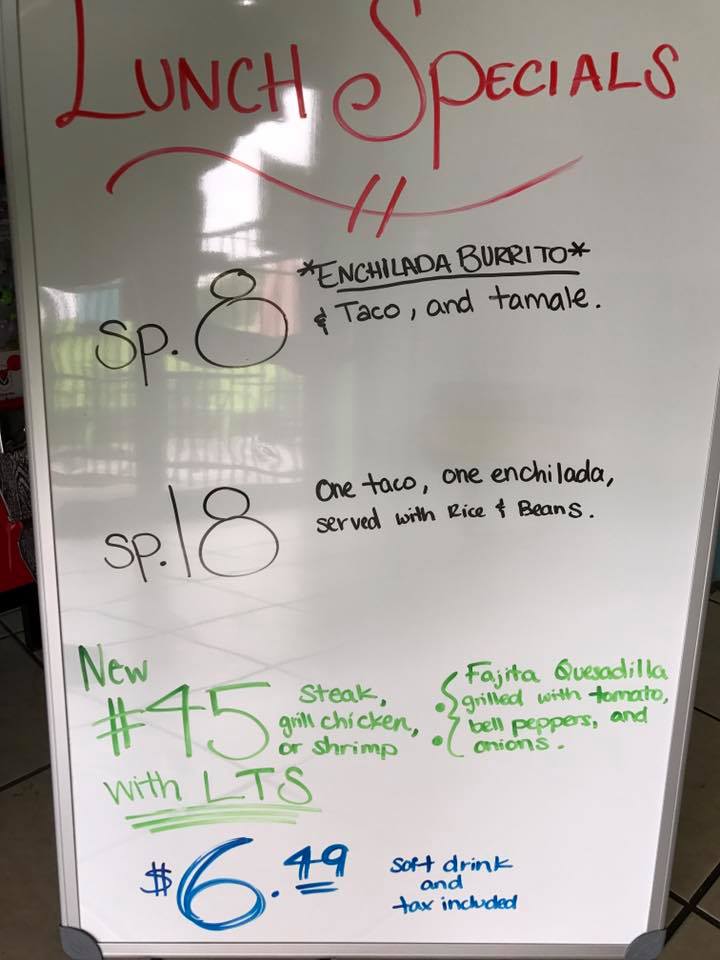 LUNCH SPECIALS
Sp. 8
*ENCHILADA BURRITO*
& Taco, and tamale.
Sp. 18
One taco, one enchilada,
served with Rice & Beans.
New
#45
Steak,
grill chicken,
or shrimp
Fajita Quesadilla
grilled with tomato,
bell peppers, and
onions.
with LTS
$6.49
soft drink
and
tax included